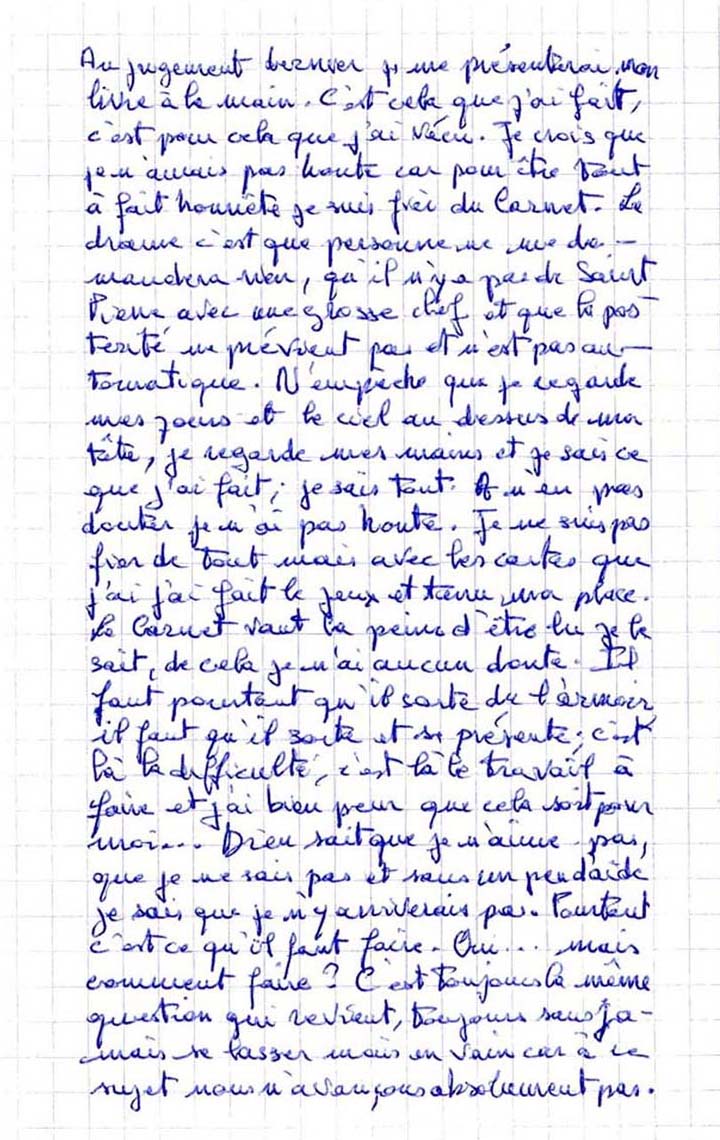 Au jugement dernier je me présenterai mon
livre à la main. C'est cela que j'ai fait,
c'est pour cela que j'ai vécu. Je crois que
je n'aurais pas honte car pour être tout
à fait honnête je suis fier du Carnet. Le
drame c'est que personne ne me de-
mandera rien, qu'il n'y a pas de Saint
Pierre avec une grosse clef et que la pos
terité ne prévient pas et n'est pas au-
tomatique. N'empêche que je regarde
mes jours et le ciel au dessus de ma
tête, je regarde mes mains et je sais ce
que j'ai fait; je sais tout. A n'en pas
douter je n'ai pas honte. Je ne suis pas
fier de tout mais avec les cartes que
j'ai j'ai fait le jeux et tenu ma place.
Le Carnet vaut la peine d'être lu je le
sait, de cela je n'ai aucun doute. Il
faut pourtant qu'il sorte de l'armoir
il faut qu'il sorte et se présente; c'est
là la difficulté, c'est là le travail à
faire et j'ai bien peur que cela soit pour
moi... Dieu sait que je n'aime pas,
que je ne sais pas et sans un peu d'aide
je sais que je n'y arriverais pas. Pourtant
c'est ce qu'il faut faire. Oui... mais
comment faire? C'est toujours la même
question qui revient, toujours sans ja-
mais se lasser mais en vain car à ce
sujet nous n'avançons absolument pas.